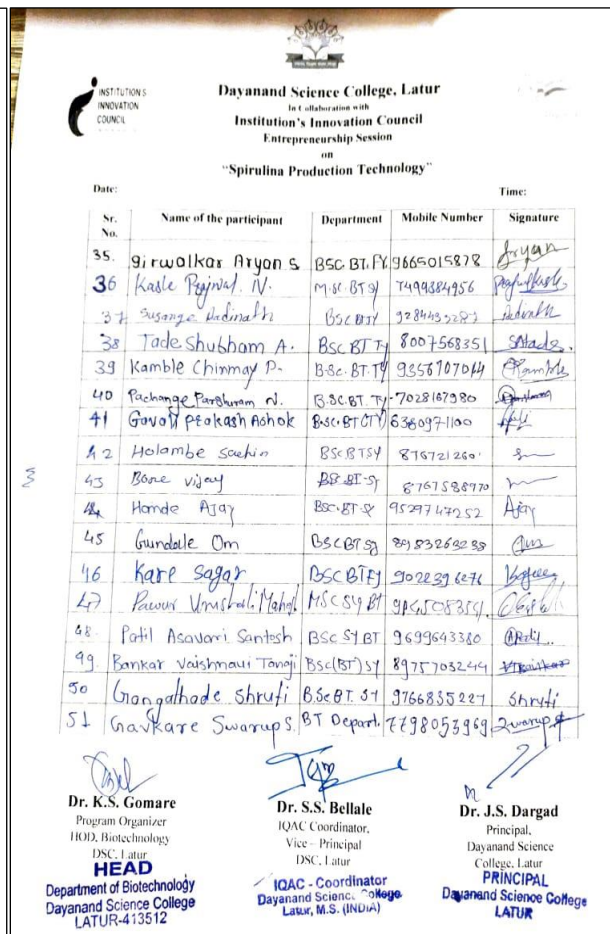 INSTITUTION'S
INNOVATION
COUNCIL
Dayanand Science College, Latur
In Collaboration with
Institution's Innovation Council
Entrepreneurship Session
on
"Spirulina Production Technology"
Date: Time:
Sr. No. Name of the participant Department Mobile Number Signature
35. Girwalkar Aryan S BSC. BT. FY 9665015878 Aryan
36 Kasle N. M.SC. BT SY 7499384956
37 Hadinath BSC BT SY
38 Tade Shubham A. BSC BT TY 8007568351 SATade
39 Kamble Chinmay P. B.Sc. BT. TY 9356707014 Kamble
40 Pachange Parshuram N. B.SC. BT. TY 7028167980
41 Gavali Prakash Ashok B.SC. BT (TY) 6360971100
42 Holambe Sachin BSC BT SY
43 Bone Vijay 8767588970
44 Hande Ajay BSC. BT-SY 9529747252 Ajay
45 Gundale Om BSC BT SY 8983263238 Om
46 Kare Sagar BSC BT FY 9022396276
47 Pawar MSC SY BT
48. Patil Asavari Santosh BSC SY BT 9699643380 APatil.
49. Bankar Vaishnavi Tanaji BSc (BT) SY 8975703244
50 Gangathade Shruti B.Sc BT. SY 9766835227 Shruti
51 Gavkare Swarup S. BT Depart. 7798053969 Swarup
Dr. K.S. Gomare
Program Organizer
HOD, Biotechnology
DSC, Latur
HEAD
Department of Biotechnology
Dayanand Science College
LATUR-413512
Dr. S.S. Bellale
IQAC Coordinator,
Vice – Principal
DSC, Latur
IQAC - Coordinator
Dayanand Science College
Latur, M.S. (INDIA)
Dr. J.S. Dargad
Principal,
Dayanand Science
College, Latur
PRINCIPAL
Dayanand Science College
LATUR